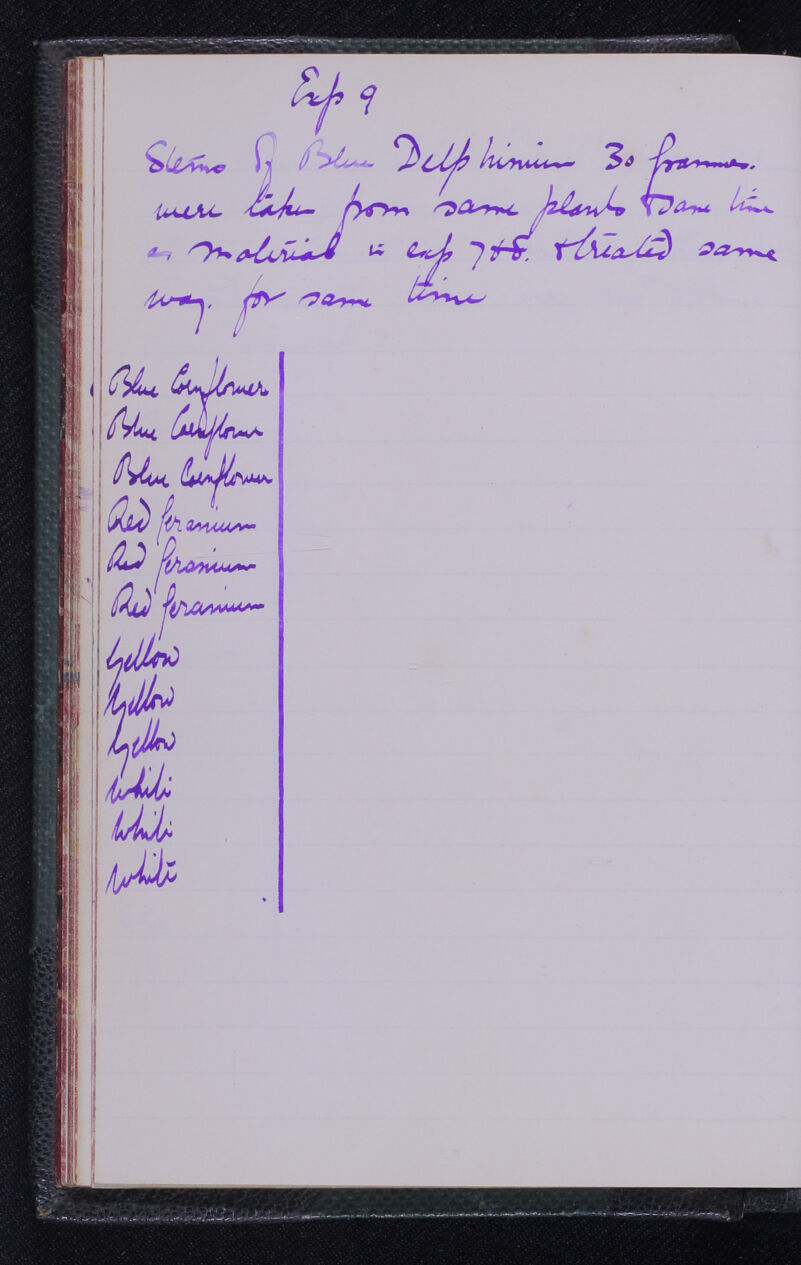 Exp 9
Stems of Blue Delphinium 30 grammes.
were taken from same plants & same time
as material in exp 7 & 8. & treated same
way. for same time
Blue Cornflower
Blue Cornflower
Blue Cornflower
Red Geranium
Red Geranium
Red Geranium
Yellow
Yellow
Yellow
White
White
White